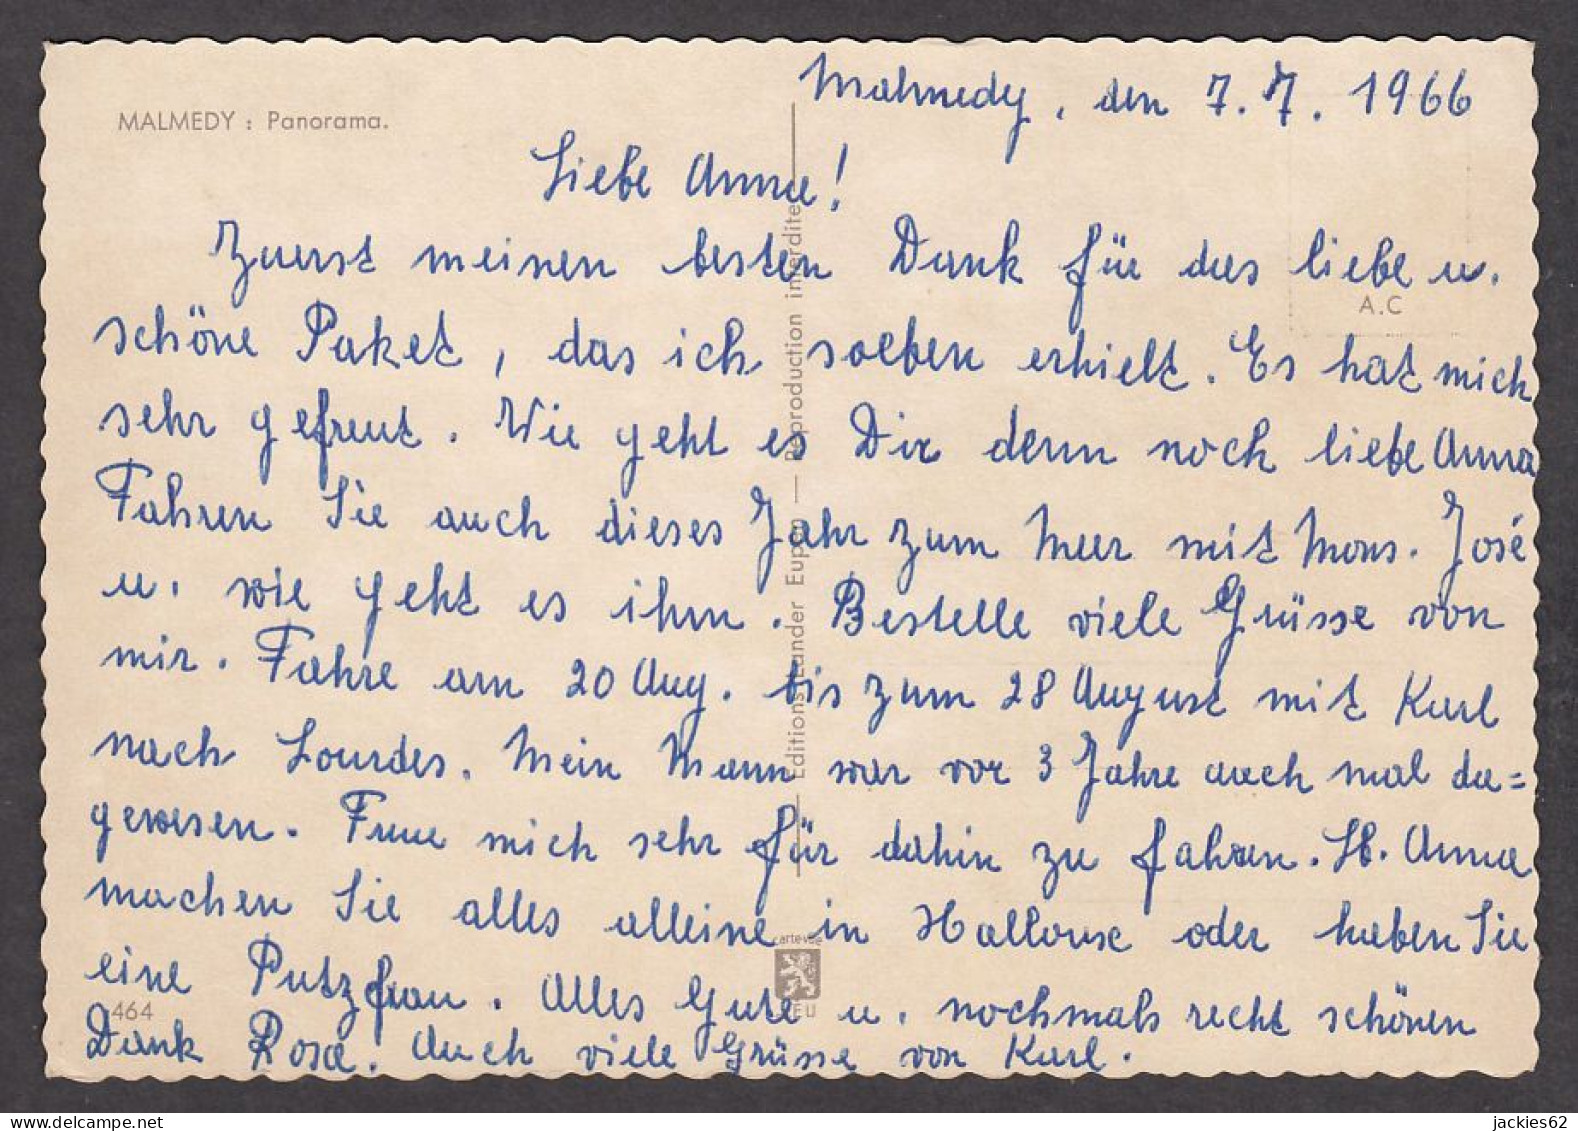 MALMEDY : Panorama.
Malmedy, den 7.7.1966
Liebe Anna!
Zuerst meinen besten Dank für das liebe u.
A.C
schöne Paket, das ich soeben erhielt. Es hat mich
sehr gefreut. Wie geht es Dir denn noch liebe Anna
Fahren Sie auch dieses Jahr zum Meer mit Mons. José
u. wie geht es ihm. Bestelle viele Grüsse von
mir. Fahre am 20 Aug. bis zum 28 August mit Karl
nach Lourdes. Mein Mann war vor 3 Jahre auch mal da=
gewesen. Freue mich sehr für dahin zu fahren. Lb. Anna
machen Sie alles alleine in Hallouse oder haben Sie
eine Putzfrau. Alles Gute u. nochmals recht schönen
Dank Rosa. Auch viele Grüsse von Karl.
464
Editions Lander Eupen — Reproduction interdite
carte vue
LEU
www.delcampe.net
jackies62